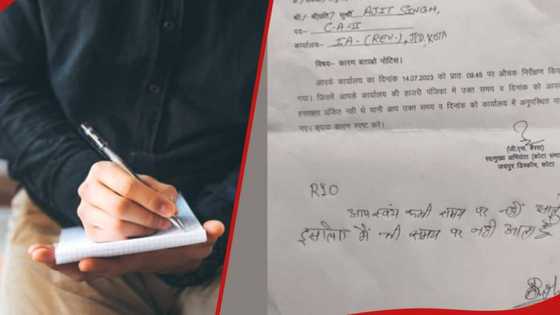 श्री/ श्रीमति/ सुश्री AJIT SINGH,
पद- C.A-II
कार्यालय- IA-(REV.), JPD, KOTA
विषय- कारण बताओ नोटिस।
आपके कार्यालय का दिनांक 14.07.2023 को प्रातः 09:45 पर औचक निरीक्षण किया
गया। जिसमें आपके कार्यालय की हाजरी पंजिका में उक्त समय व दिनांक को आपके
हस्ताक्षर अंकित नही थे यानी आप उक्त समय व दिनांक को कार्यालय में अनुपस्थित
गए। कृपया कारण स्पष्ट करें।
(जी.एस. बैरवा)
मुख्य अभियंता (कोटा
जयपुर डिस्कॉम, कोटा
RIO
आप स्वंय कभी समय पर नहीं आते
इसलिए मैं भी समय पर नहीं आता हूँ